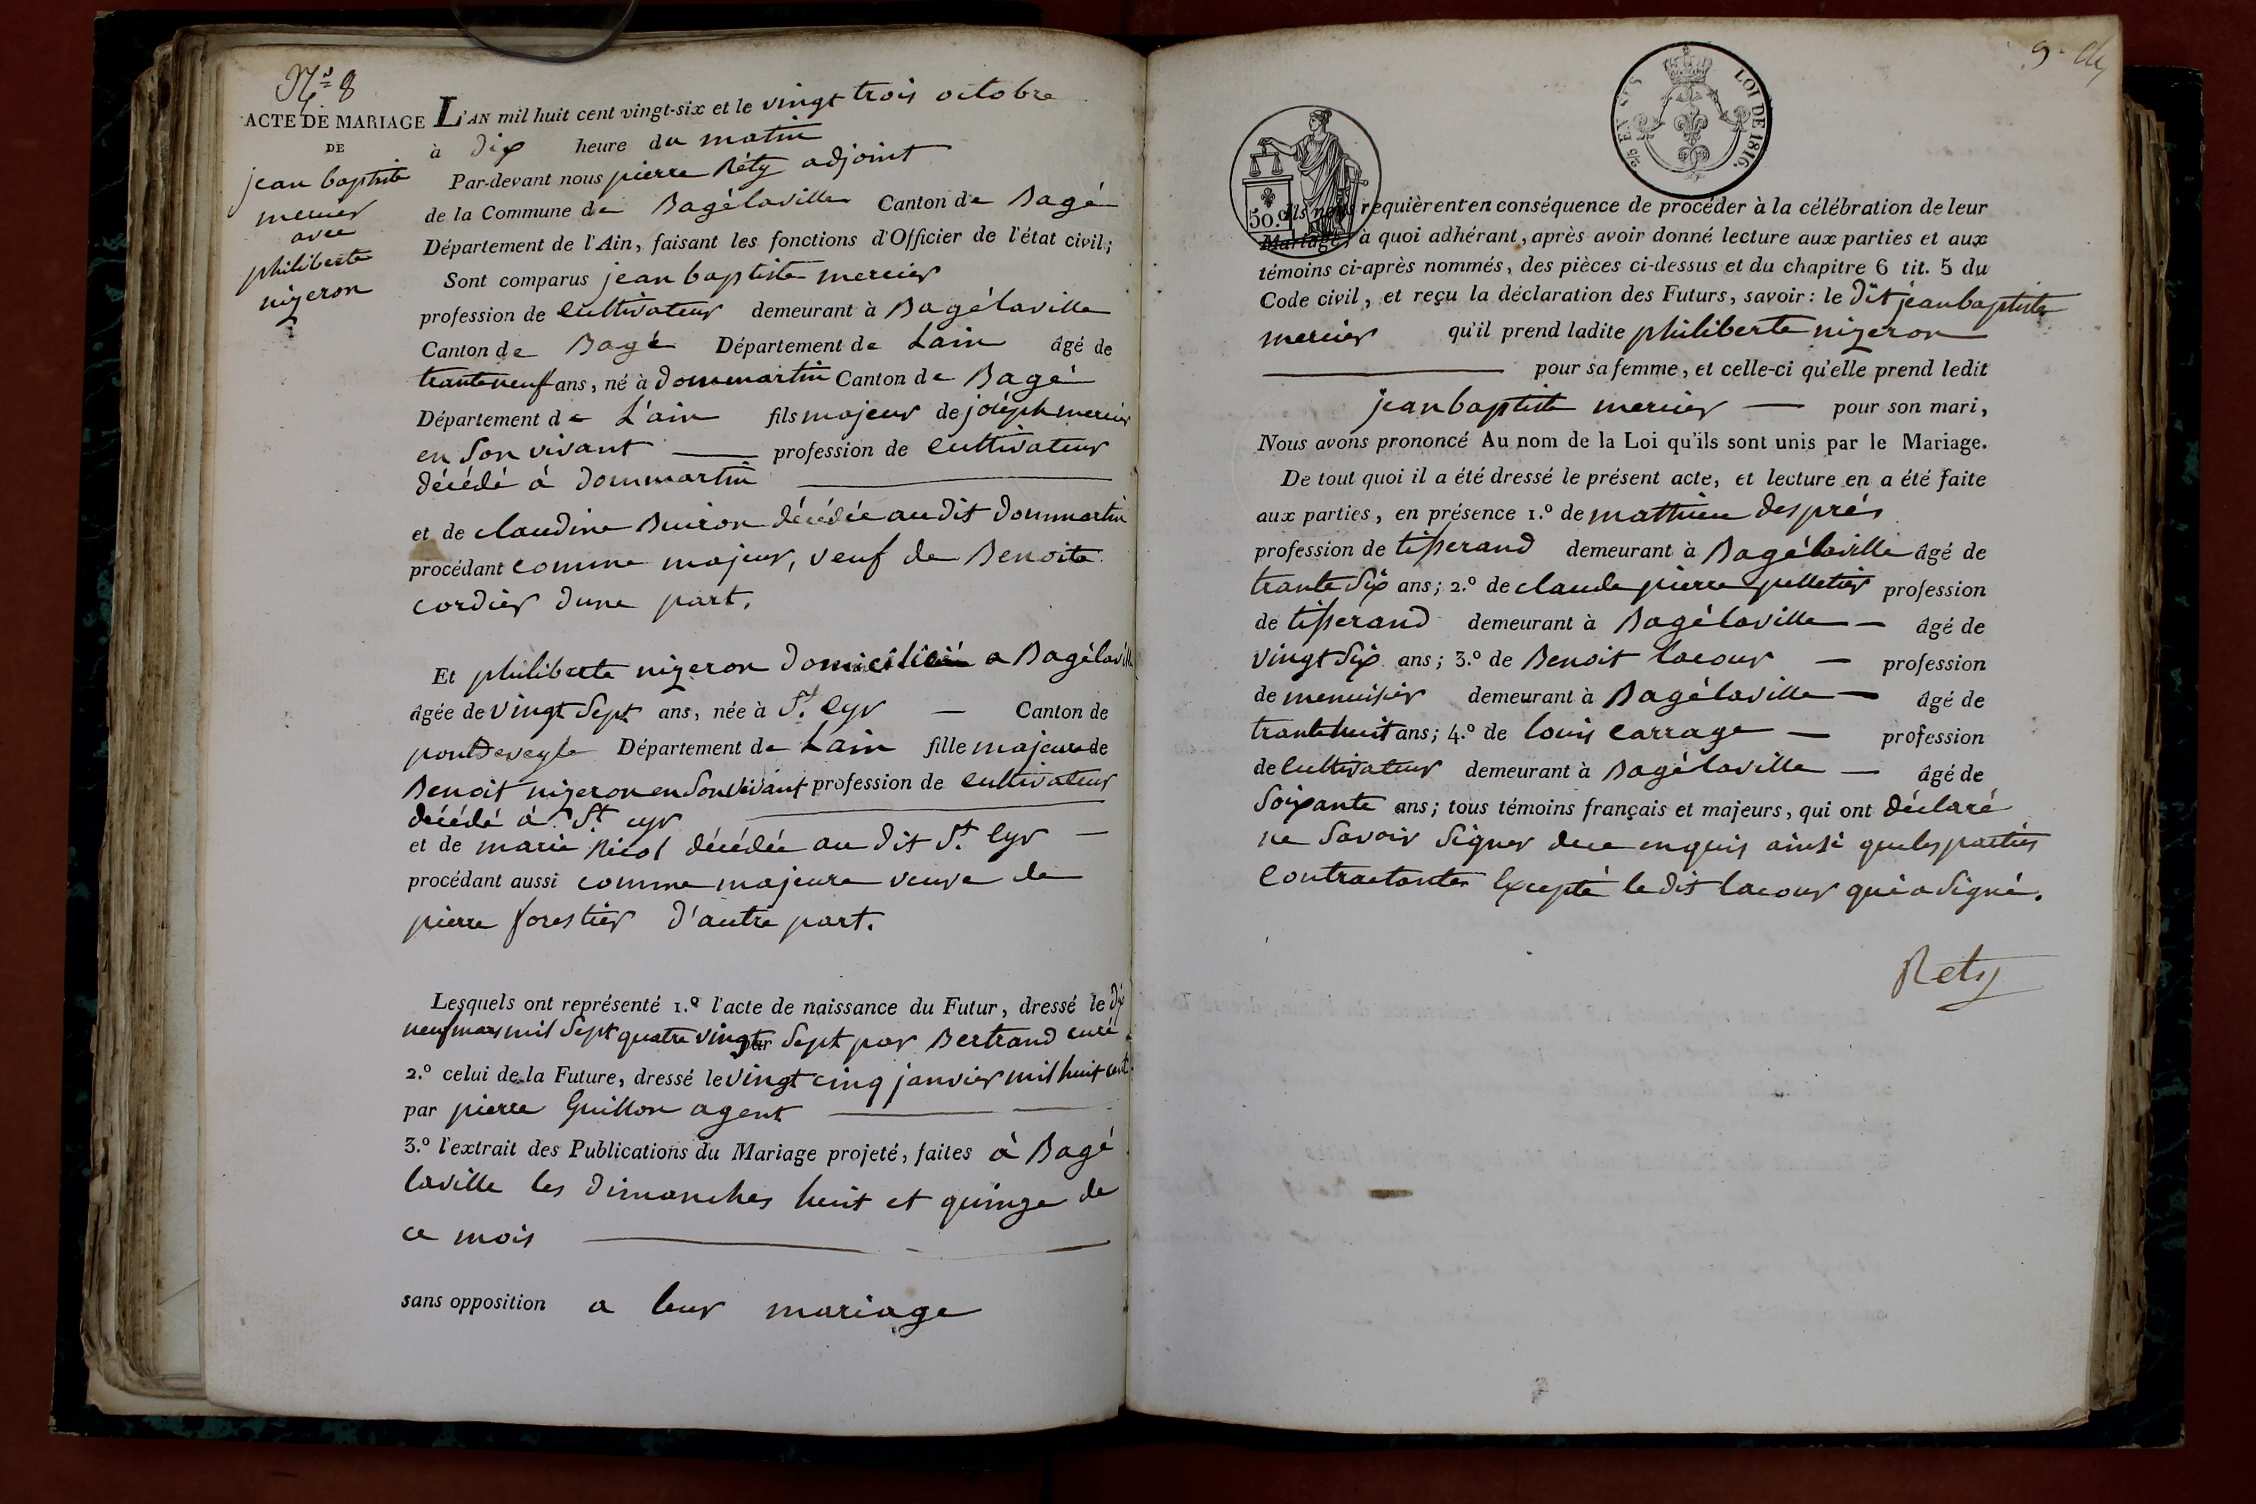 N.° 8
ACTE DE MARIAGE
DE
jean baptiste
mercier
avec
philiberte
nizeron
L'AN mil huit cent vingt-six et le vingt trois octobre
à dix heure du matin
Par-devant nous pierre Réty adjoint
de la Commune de Bagélaville Canton de Bagé
Département de l'Ain, faisant les fonctions d'Officier de l'état civil;
Sont comparus jean baptiste mercier
profession de cultivateur demeurant à Bagélaville
Canton de Bagé Département de Lain âgé de
trante neuf ans, né à dommartin Canton de Bagé
Département de L'ain fils majeur de joseph mercier
en son vivant profession de cultivateur
décédé à dommartin
et de claudine Buiron décédée audit dommartin
procédant comme majeur, veuf de Benoite
cordier dune part.
Et philiberte nizeron domiciliée a Bagélaville
âgée de vingt sept ans, née à St. Cyr Canton de
pontdeveyle Département de Lain fille majeure de
Benoit nizeron en son vivant profession de cultivateur
décédé à St cyr
et de marie Nicol décédée au dit St. Cyr
procédant aussi comme majeure veuve de
pierre forestier d'autre part.
Lesquels ont représenté 1.° l'acte de naissance du Futur, dressé le dix
neuf mars mil sept quatre vingt sept par Bertrand curé
2.° celui de la Future, dressé le vingt cinq janvier mil huit cent
par pierre Guillon agent
3.° l'extrait des Publications du Mariage projeté, faites à Bagé
laville les dimanches huit et quinze de
ce mois
sans opposition a leur mariage
LOI DE 1816.
50.c
Ils nous requièrent en conséquence de procéder à la célébration de leur
Mariage, à quoi adhérant, après avoir donné lecture aux parties et aux
témoins ci-après nommés, des pièces ci-dessus et du chapitre 6 tit. 5 du
Code civil, et reçu la déclaration des Futurs, savoir: le dit jean baptiste
mercier qu'il prend ladite philiberte nizeron
pour sa femme, et celle-ci qu'elle prend ledit
jean baptiste mercier pour son mari,
Nous avons prononcé Au nom de la Loi qu'ils sont unis par le Mariage.
De tout quoi il a été dressé le présent acte, et lecture en a été faite
aux parties, en présence 1.° de matthieu després
profession de tisserand demeurant à Bagélaville âgé de
trante six ans; 2.° de claude pierre pelletier profession
de tisserand demeurant à Bagélaville âgé de
vingt six ans; 3.° de Benoit lacour profession
de menuisier demeurant à Bagélaville âgé de
trante huit ans; 4.° de louis carrage profession
de cultivateur demeurant à Bagélaville âgé de
soixante ans; tous témoins français et majeurs, qui ont déclaré
ne savoir signer de ce enquis ainsi que les parties
contractantes Excepté le dit lacour qui a signé.
Rety